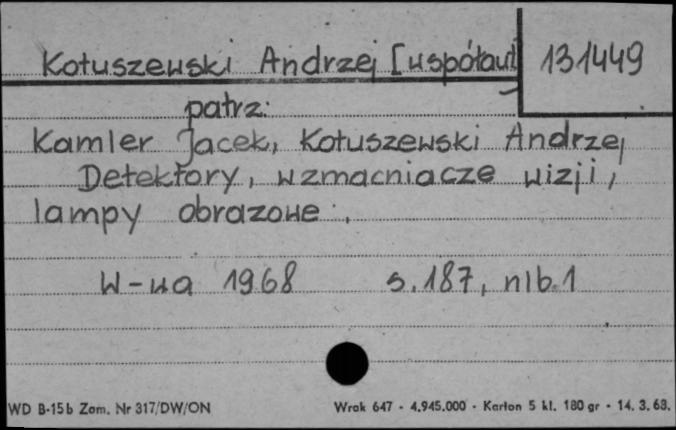 Kotuszewski Andrzej [współaut]
131449
patrz:
Kamler Jacek, Kotuszewski Andrzej
Detektory, wzmacniacze wizji,
lampy obrazowe.
W-wa 1968 s. 187, nlb. 1
WD B-15b Zam. Nr 317/DW/ON
Wrak 647 - 4.945.000 - Karton 5 kl. 180 gr - 14. 3. 68.